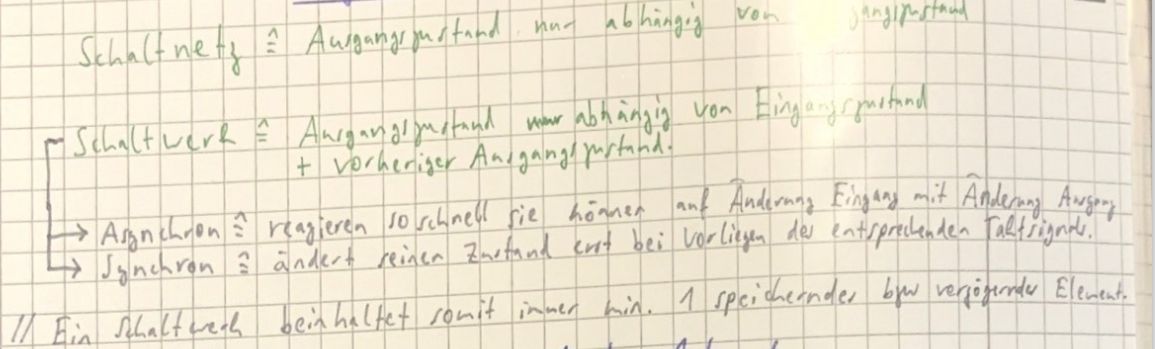 Schaltnetz ≙ Ausgangszustand nur abhängig von gangszustand
Schaltwerk ≙ Ausgangszustand abhängig von Eingangszustand
+ vorheriger Ausgangszustand.
→ Asynchron ≙ reagieren so schnell sie können auf Änderung Eingang mit Änderung Ausgang
→ Synchron ≙ ändert seinen Zustand erst bei Vorliegen des entsprechenden Taktsignals.
// Ein Schaltwerk beinhaltet somit immer min. 1 speicherndes bzw verzögerndes Element.